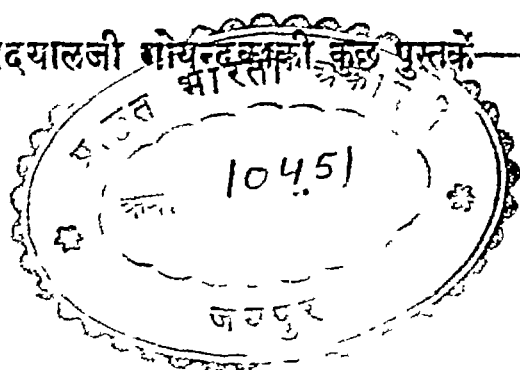 दयालजी गोयन्दकाकी कुछ पुस्तकें—
भारती
10451
जयपुर